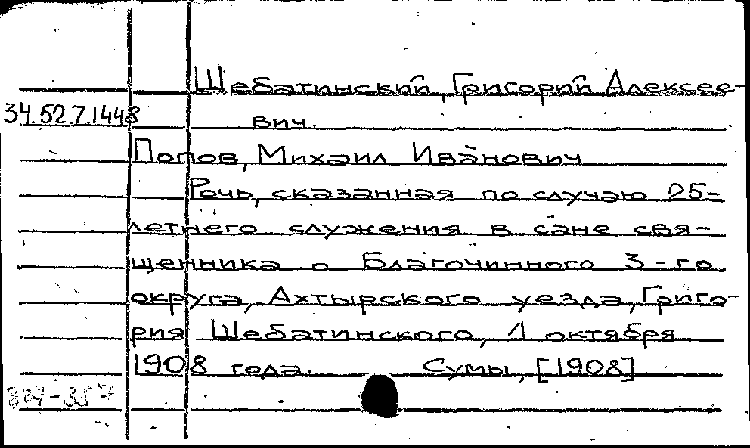 Шебатинский, Григорий Алексее-
34.52.7.1448 вич.
Попов, Михаил Иванович
Речь, сказанная по случаю 25-
летнего служения в сане свя-
щенника о Благочинного 3-го
округа, Ахтырского уезда, Григо-
рия Шебатинского, 1 октября
1908 года. Сумы, [1908]